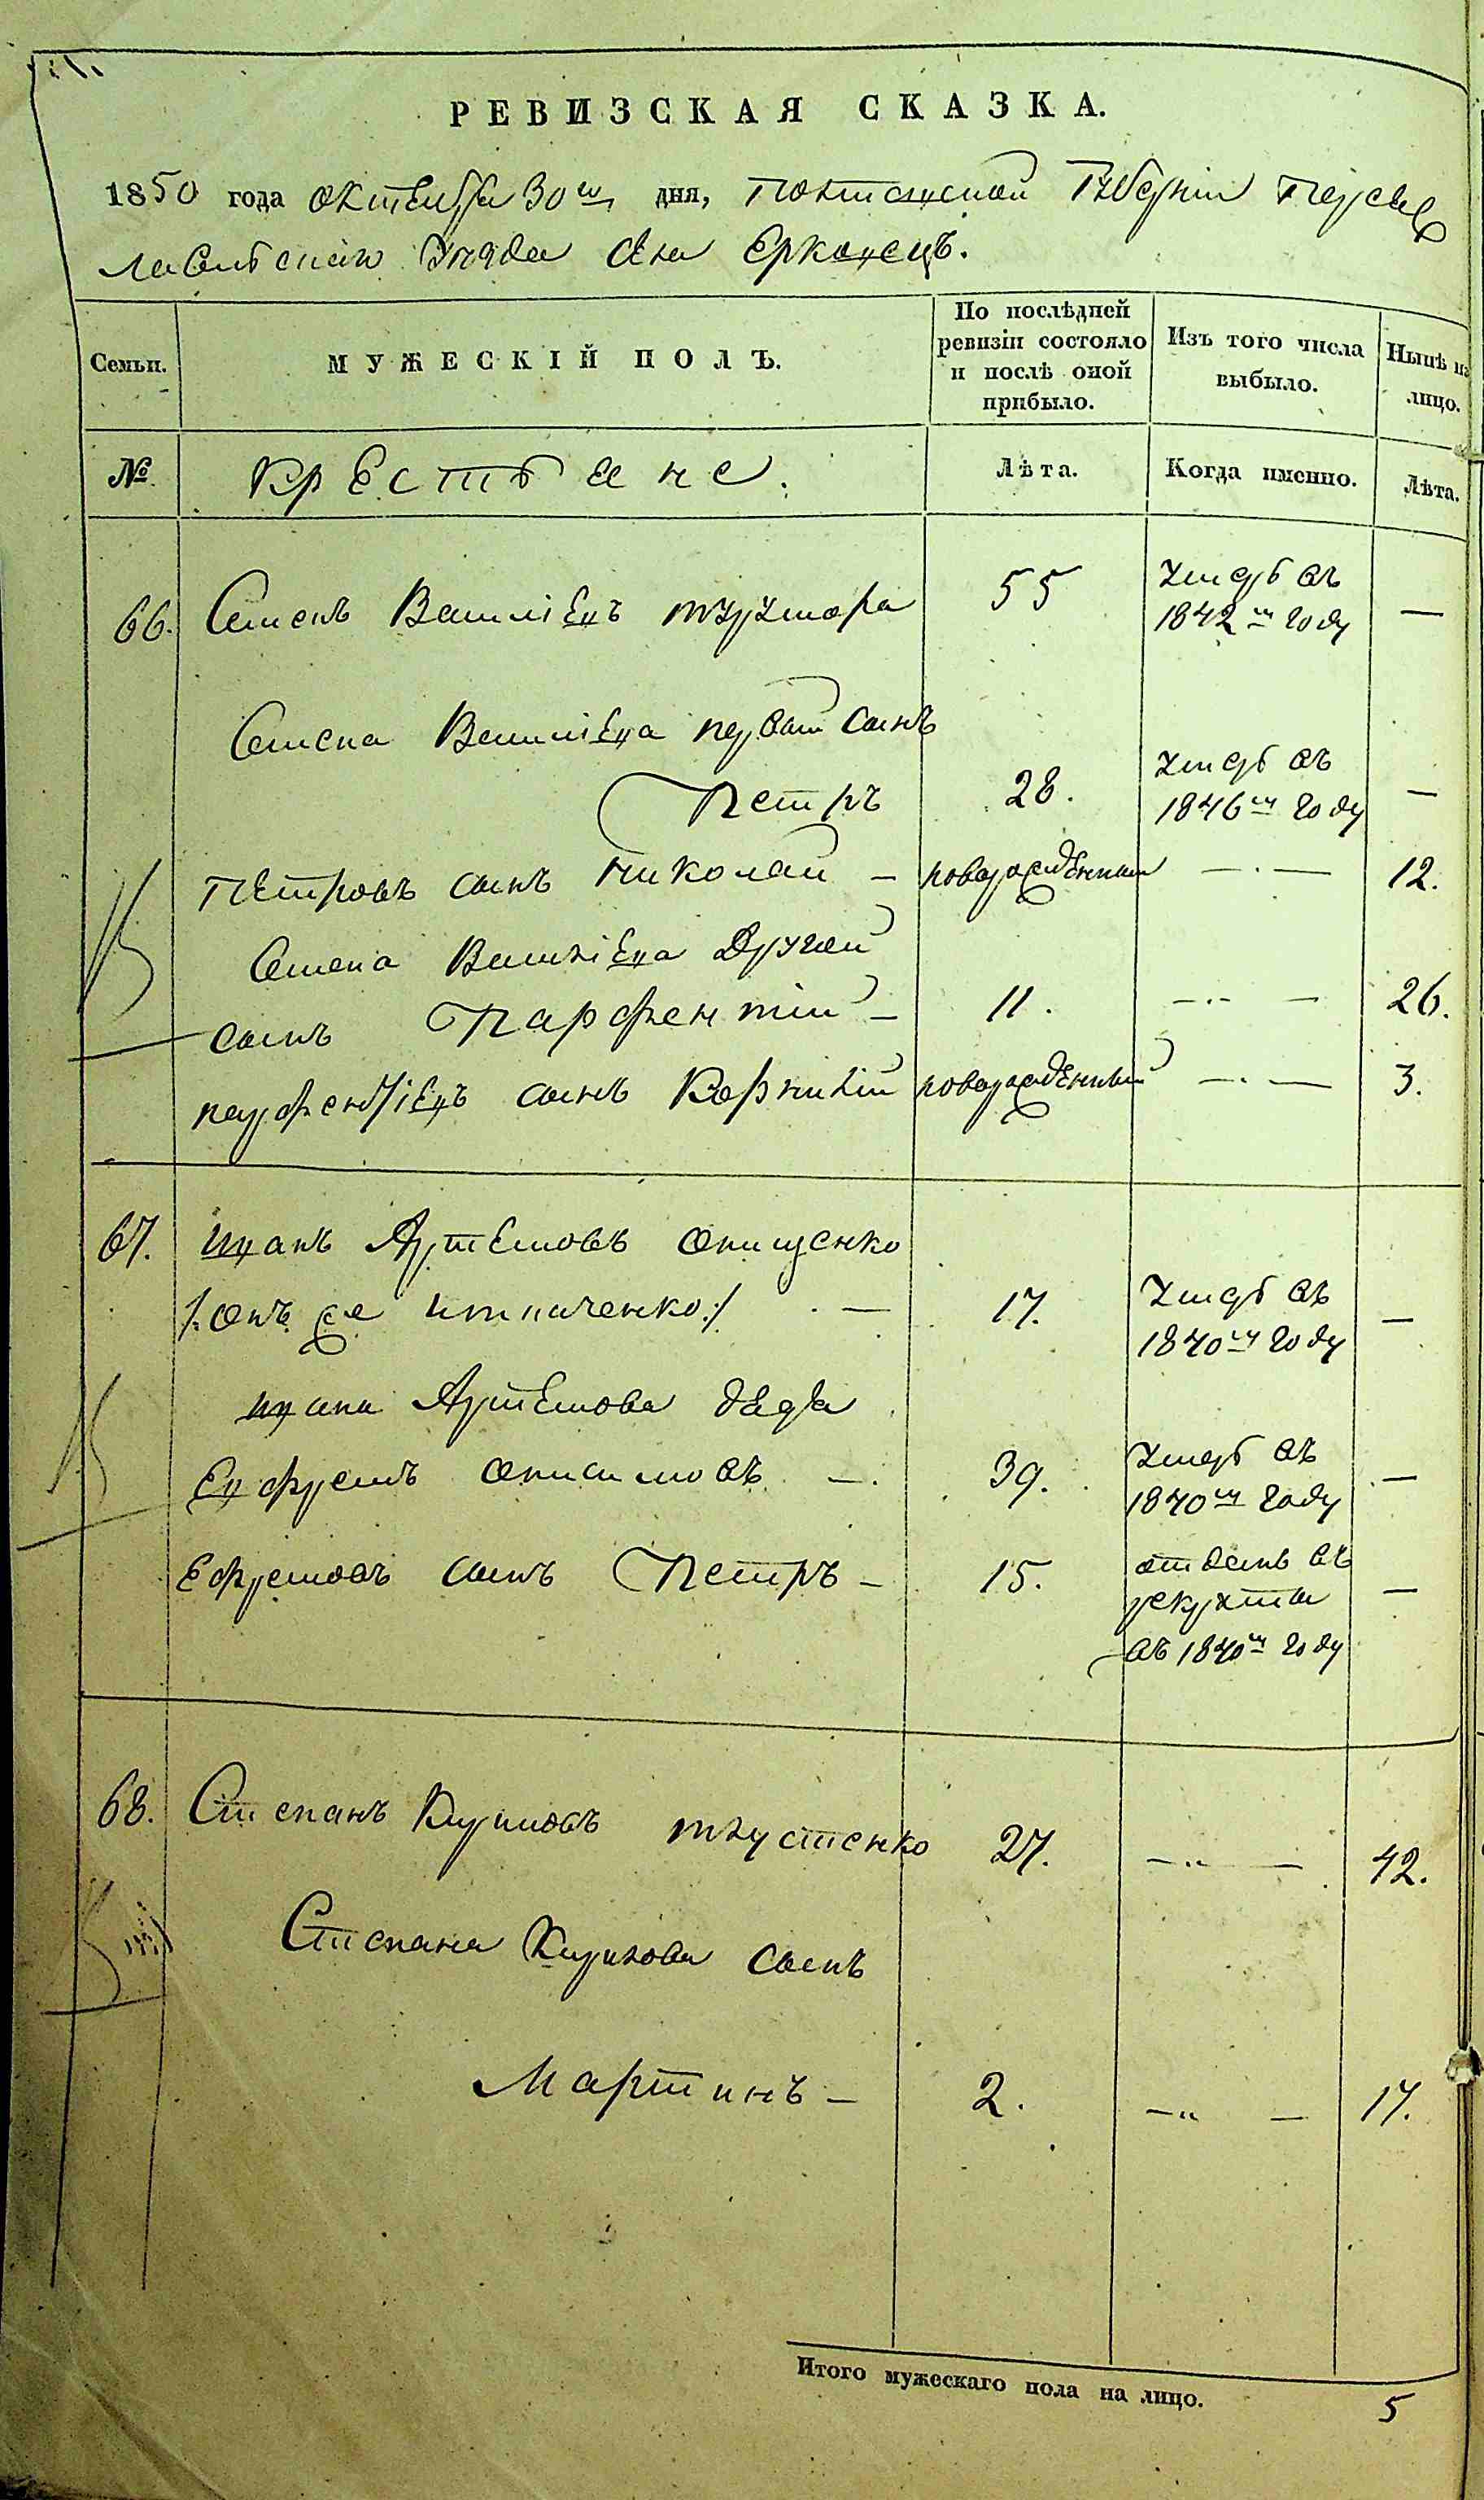 РЕВИЗСКАЯ СКАЗКА.
1850 года октября 30го дня, Полтавской Губерніи Переяс
лавскаго Уезда села Ерковецъ.
Семьи.
МУЖЕСКІЙ ПОЛЪ.
По послѣдней ревизіи состояло и послѣ оной прибыло.
Изъ того числа выбыло.
Нынѣ на лицо.
№
Крестьяне.
Лѣта.
Когда именно.
Лѣта.
66. Семенъ Васильевъ 55 умеръ въ
1842м году —
Семена Васильева первый сынъ
Петръ 28. умеръ въ
1846м году —
Петровъ сынъ Николай — новорожденный — · — 12.
Семена Васильева другой
сынъ Парфентій — 11. — ·· — 26.
Парфентіевъ сынъ Корнилій новорожденный — · — 3.
67. Иванъ Артемовъ Онищенко
/:онъ же Игнатченко:/ — 17. умеръ въ
1840м году —
Ивана Артемова дядя
Евфремъ Онисимовъ — 39. умеръ въ
1840м году —
Ефремовъ сынъ Петръ — 15. отданъ въ
рекруты
въ 1840м году —
68. Степанъ Кириловъ Тлустенко 27. — „ — 42.
Степана Кирилова сынъ
Мартинъ — 2. — „ — 17.
Итого мужескаго пола на лицо. 5